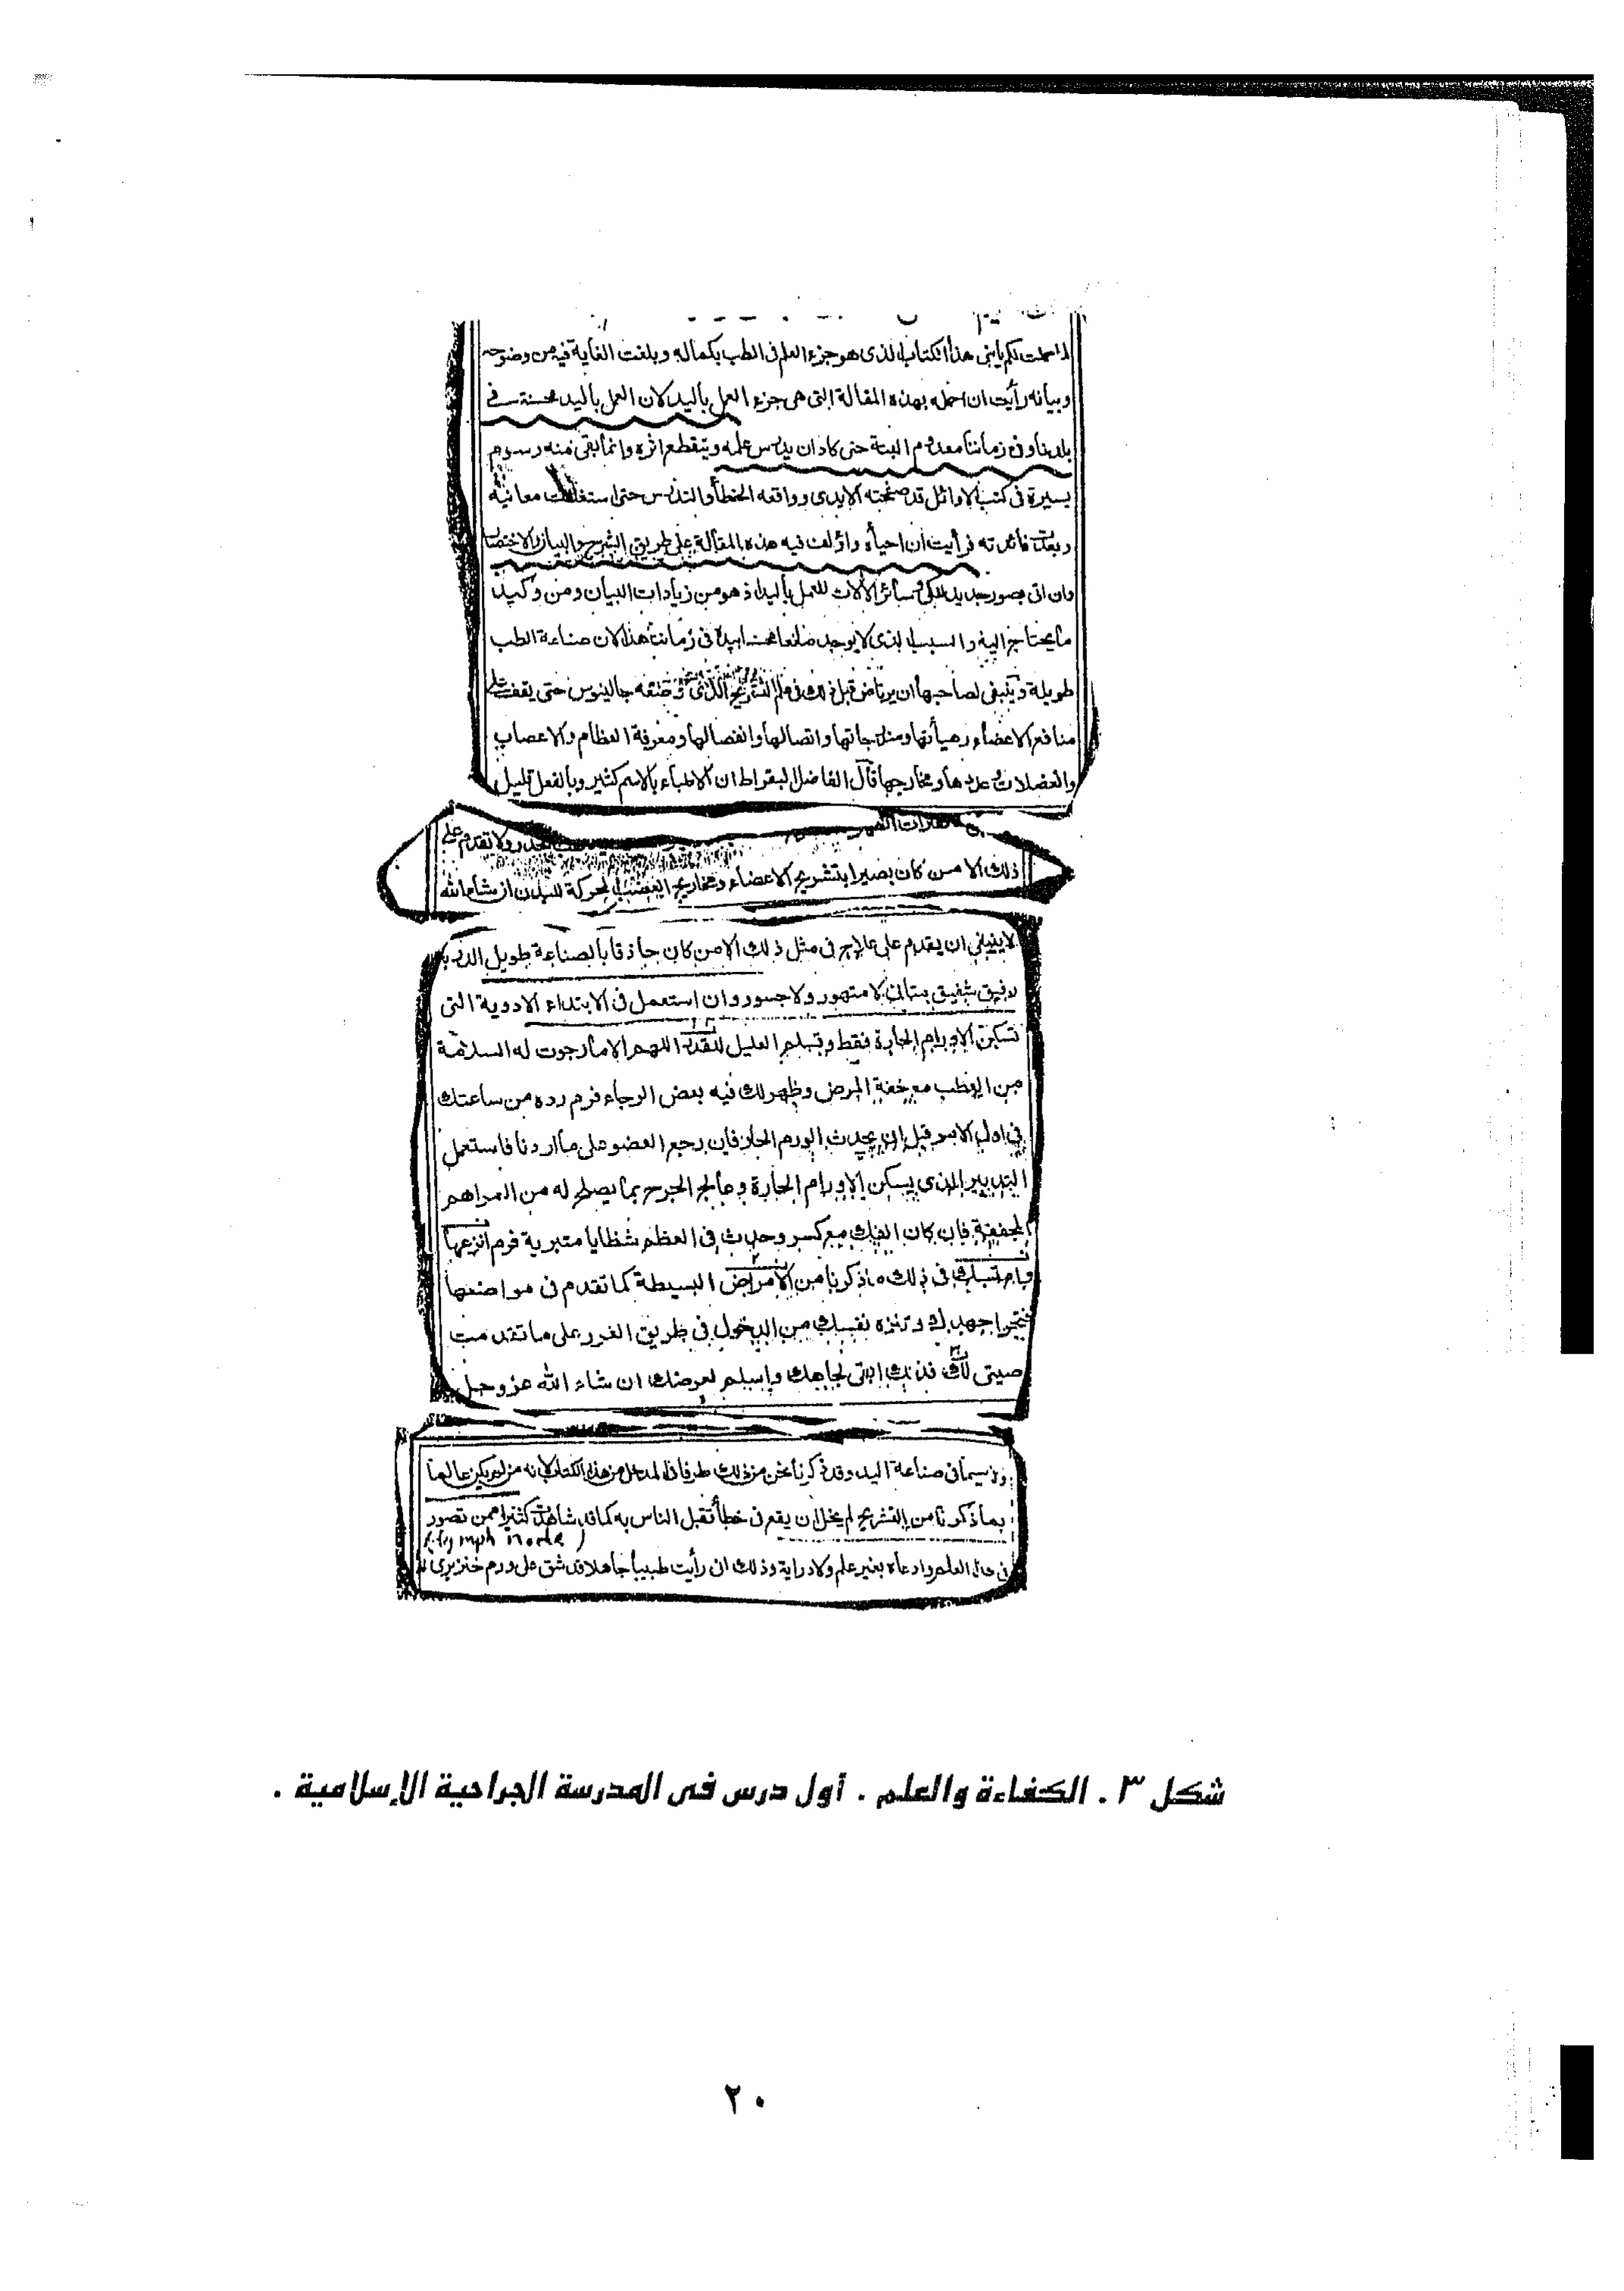 لما اكملت لكم يا بنى هذا الكتاب الذى هو جزء العلم فى الطب بكماله وبلغت الغاية فيه من وضوحه
وبيانه رأيت ان اكمله بهذه المقالة التى هى جزء العمل باليد لان العمل باليد محسنة فى
بلدنا وفى زماننا معدوم البتة حتى كاد ان يدرس علمه وينقطع اثره وانما بقى منه رسوم
يسيرة فى كتب الاوائل قد صحفته الايدى وواقعه الخطأ والتدس حتى استغلقت معانيه
وبعدت فائدته فرأيت ان احياه واؤلف فيه هذه المقالة على طريق الشرح والبيان والاختصار
وان اتى بصور حديد الكى وسائر الآلات للعمل باليد اذ هو من زيادات البيان ومن وكيد
ما يحتاج اليه والسبب الذى لا يوجد صانعا محسنا بيده فى زماننا هذا لان صناعة الطب
طويلة وينبغى لصاحبها ان يرتاض قبل ذلك فى علم التشريح الذى وصفه جالينوس حتى يقف على
منافع الاعضاء وهيأتها ومزاجاتها واتصالها وانفصالها ومعرفة العظام والاعصاب
والعضلات وعددها ومخارجها قال الفاضل البقراط ان الاطباء بالاسم كثير وبالفعل قليل
فقارات الظهر الحذر ولا تقدم على
ذلك الا من كان بصيرا بتشريح الاعضاء ومخارج العصب المحركة للبدن ان شاء الله
لا ينبغى ان يقدم على علاج فى مثل ذلك الا من كان حاذقا بالصناعة طويل الدربة
رفيق شفيق متانى لا متهور ولا جسور وان استعمل فى الابتداء الادوية التى
تسكن الاورام الحارة فقط وتسلم العليل للقدر اللهم الا ما رجوت له السلامة
من العطب مع خفة المرض وظهر لك فيه بعض الرجاء فرم رده من ساعتك
فى اول الامر قبل ان يحدث الورم الحار فان رجع العضو على ما اردنا فاستعمل
التدبير الذى يسكن الاورام الحارة وعالج الجرح بما يصلح له من المراهم
المجففة فان كان الفك مع كسر وحدث فى العظم شظايا متبرية فرم انزعها
وامتثل فى ذلك ما ذكرنا من الامراض البسيطة كما تقدم فى مواضعها
جهدك وتنزه نفسك من الدخول فى طريق الغرر على ما تقدمت
وصيتى لك فذلك ابقى لجاهك واسلم لعرضك ان شاء الله عز وجل
ولا سيما فى صناعة اليد وقد ذكرنا نحن من ذلك طرفا فى المدخل من هذا الكتاب لانه من لم يكن عالما
بما ذكرنا من التشريح لم يخل ان يقع فى خطأ تقبل الناس به كما قد شاهدت كثيرا ممن تصور
(lymph node)
فى هذا العلم وادعاه بغير علم ولا دراية وذلك انى رأيت طبيبا جاهلا قد شق على ورم خنزيرى
شكل ٣ . الكفاءة والعلم . أول درس فى المدرسة الجراحية الإسلامية .
٢٠